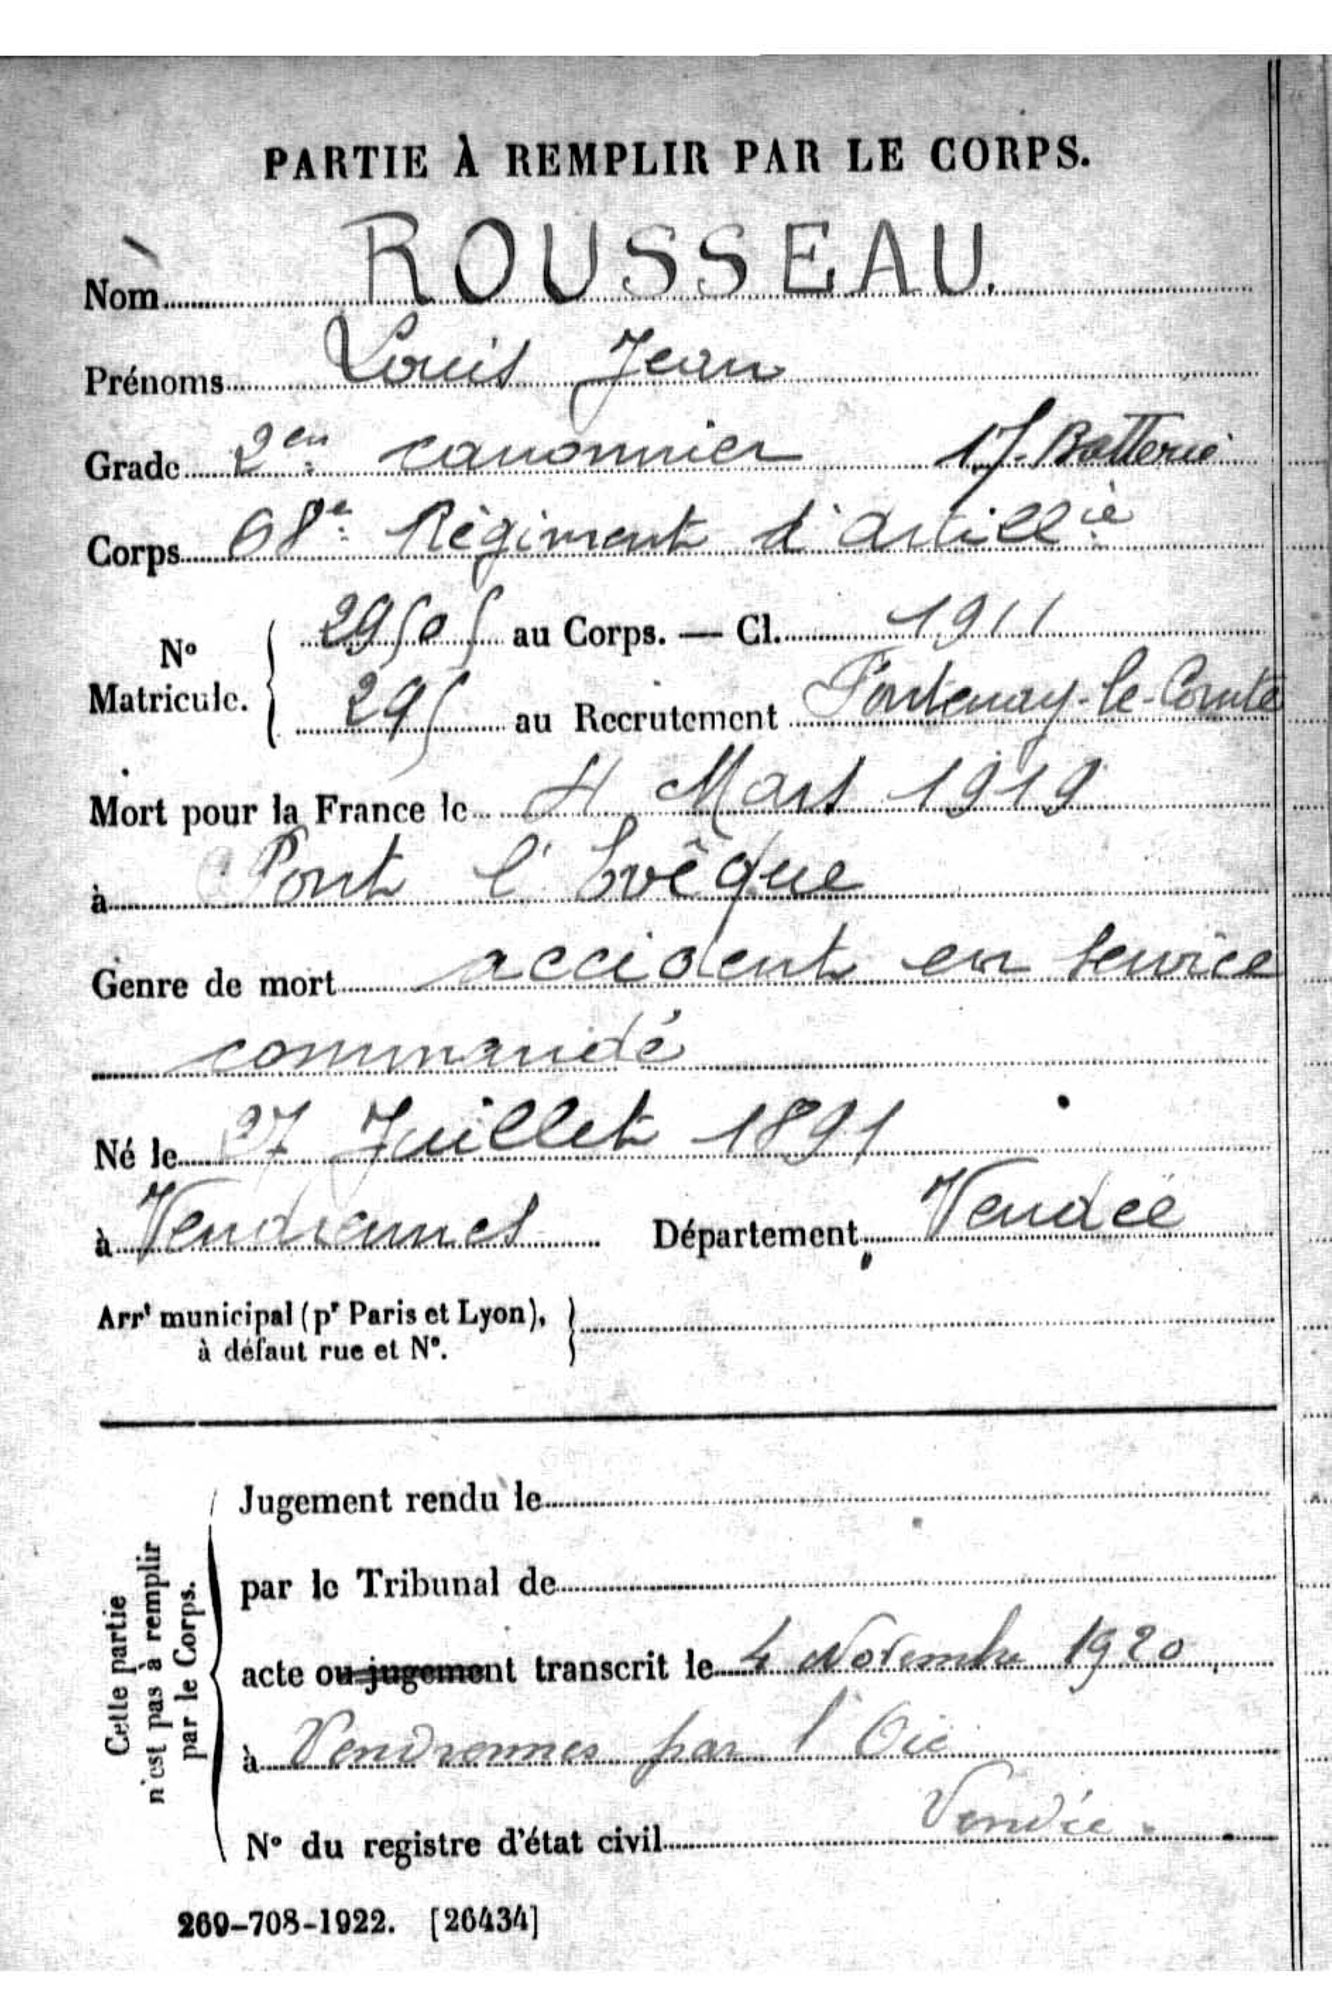 PARTIE À REMPLIR PAR LE CORPS.
Nom ROUSSEAU.
Prénoms Louis Jean
Grade 2en canonnier 17. Batterie
Corps 68e Régiment d'artillie
No Matricule. 29505 au Corps. — Cl. 1911
295 au Recrutement Fontenay-le-Comte
Mort pour la France le 4 Mars 1919
à Pont l'Evêque
Genre de mort accident en service
commandé
Né le 27 Juillet 1891
à Vendrennes Département Vendée
Arrt municipal (pr Paris et Lyon),
à défaut rue et No.
Cette partie
n'est pas à remplir
par le Corps.
Jugement rendu le
par le Tribunal de
acte ou jugement transcrit le 4 Novembre 1920
à Vendrennes par l'Oie
Vendée.
No du registre d'état civil
269-708-1922. [26434]